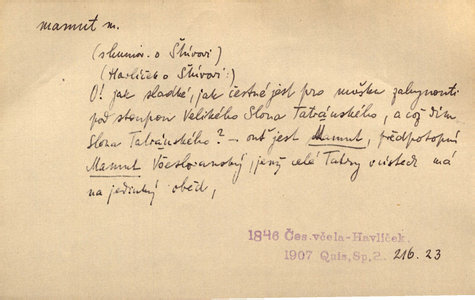 mamut m.
(slunov. o Štúrovi)
(Havlíček o Štúrovi:)
O! jak sladké, jak čestné jest pro mušku zahynouti
pod stoupou Velikého Slona Tatránského, a což dím
Slona Tatránského? – onť jest Mamut, předpotopní
Mamut Všeslovanský, jenž celé Tatry v ústech má
na jedinký oběd,
1846 Čes. včela-Havlíček.
1907 Quis, Sp, 2. 216. 23